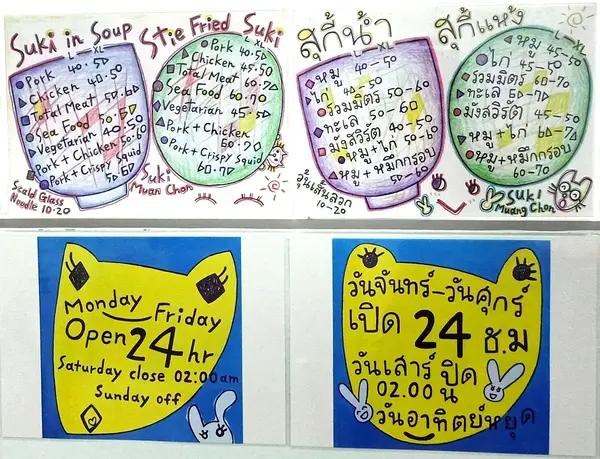 Suki in Soup
L XL
Pork 40-50
Chicken 40-50
Total Meat 50-60
Sea Food 50-60
Vegetarian 40-50
Pork+Chicken 50-60
Pork+Crispy Squid
50-60
Seald Glass
Noodle 10-20
Stie Fried Suki
L XL
Pork 45-50
Chicken 45-50
Total Meat 60-70
Sea Food 60-70
Vegetarian 45-50
Pork+Chicken
60-70
Pork+Crispy Squid
60-70
Suki
Muan Chon
สุกี้น้ำ
L XL
หมู 40-50
ไก่ 40-50
รวมมิตร 50-60
ทะเล 50-60
มังสวิรัติ 40-50
หมู+ไก่ 50-60
หมู+หมึกกรอบ
50-60
วุ้นเส้นลวก
10-20
สุกี้แห้ง
L XL
หมู 45-50
ไก่ 45-50
รวมมิตร 60-70
ทะเล 60-70
มังสวิรัติ 45-50
หมู+ไก่ 60-70
หมู+หมึกกรอบ
60-70
Suki
Muang Chon
Monday - Friday
Open 24 hr
Saturday close 02:00am
Sunday off
วันจันทร์-วันศุกร์
เปิด 24 ช.ม
วันเสาร์ ปิด
02.00 น
วันอาทิตย์หยุด